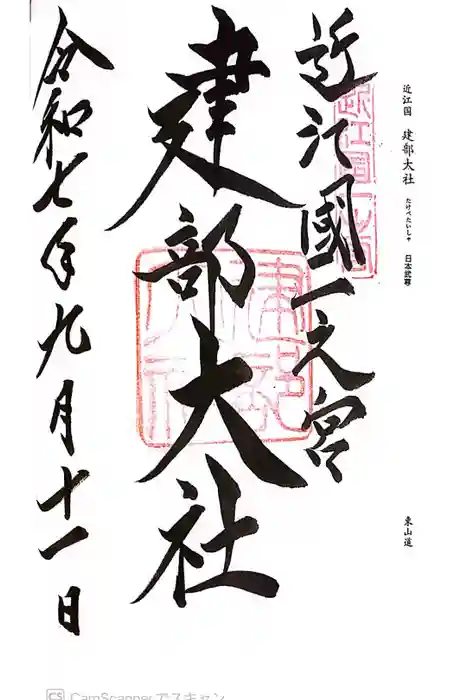 近江国 建部大社 たけべたいしゃ 日本武尊
東山道
近江國一之宮
建部大社
令和七年九月十一日
近江國一之宮
建部大社
CS CamScannerでスキャン